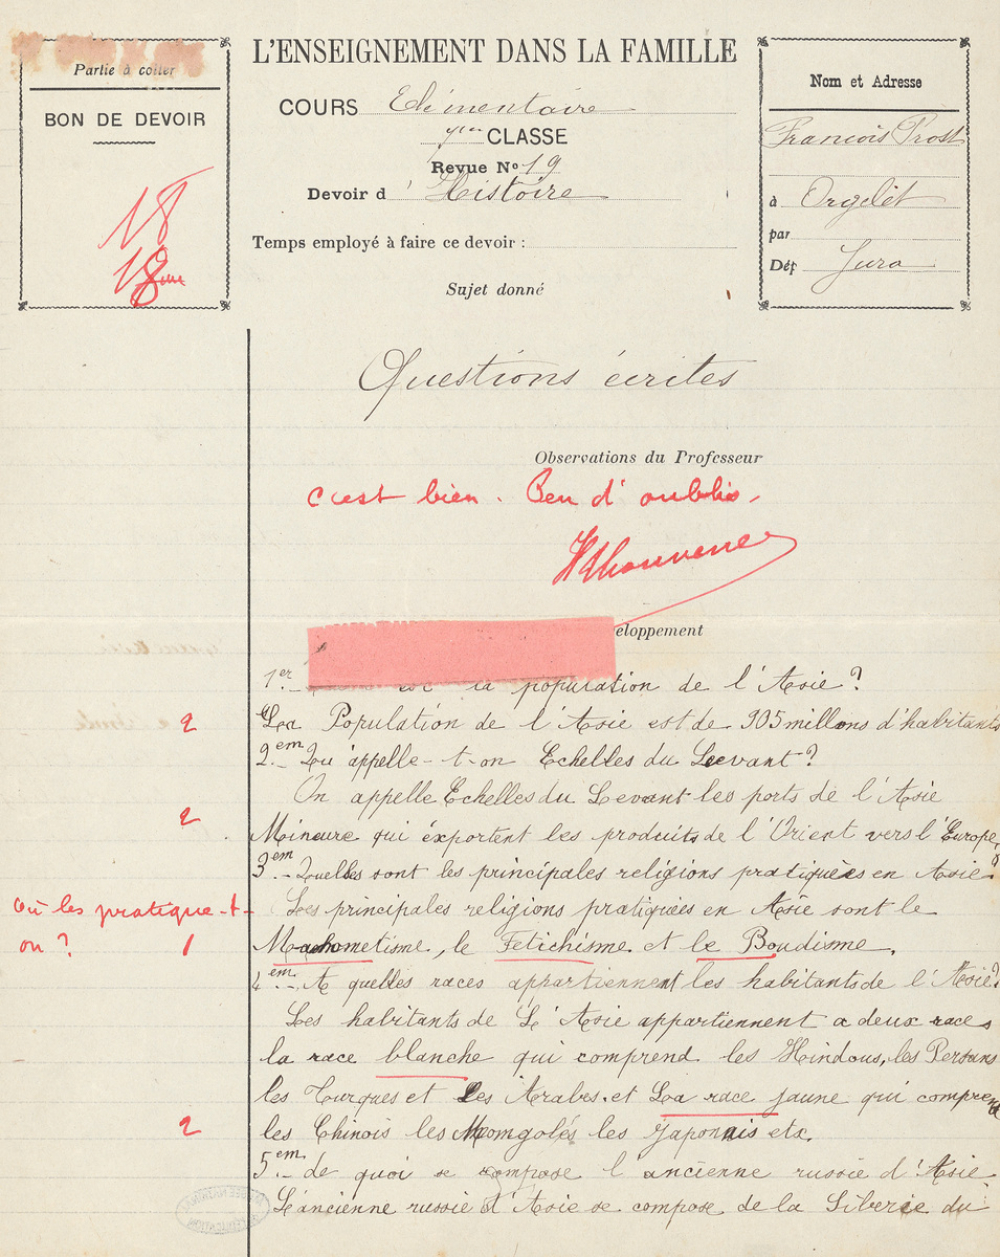 Partie à coller
BON DE DEVOIR
18
18ème
L'ENSEIGNEMENT DANS LA FAMILLE
COURS Elémentaire
7ème CLASSE
Revue No 19
Devoir d'Histoire
Temps employé à faire ce devoir :
Sujet donné
Nom et Adresse
Francois Prost
à Orgelet
par
Dép Jura
Questions écrites
Observations du Professeur
c'est bien. Peu d'oublis.
eloppement
1er.- la population de l'Asie?
2
La Population de l'Asie est de 905 millons d'habitants
2em.- Qu'appelle-t-on Echelles du Levant?
On appelle Echelles du Levant les ports de l'Asie
2
Mineure qui éxportent les produits de l'Orient vers l'Europe,
3em.- Quelles sont les principales religions pratiquées en Asie
Où les pratique-t-
Les principales religions pratiquées en Asie sont le
on? 1
Mahometisme, le Fetichisme et le Boudisme.
4em.- A quelles races appartiennent les habitants de l'Asie?
Les habitants de L'Asie appartiennent a deux races
la race blanche qui comprend les Hindous, les Persans
les Turques et Les Arabes. et La race jaune qui comprend
2
les Chinois les Momgolés les Japonais etx.
5em.- de quoi se compose l'ancienne russie d'Asie
L'éancienne russie d'Asie se compose de la Siberie du